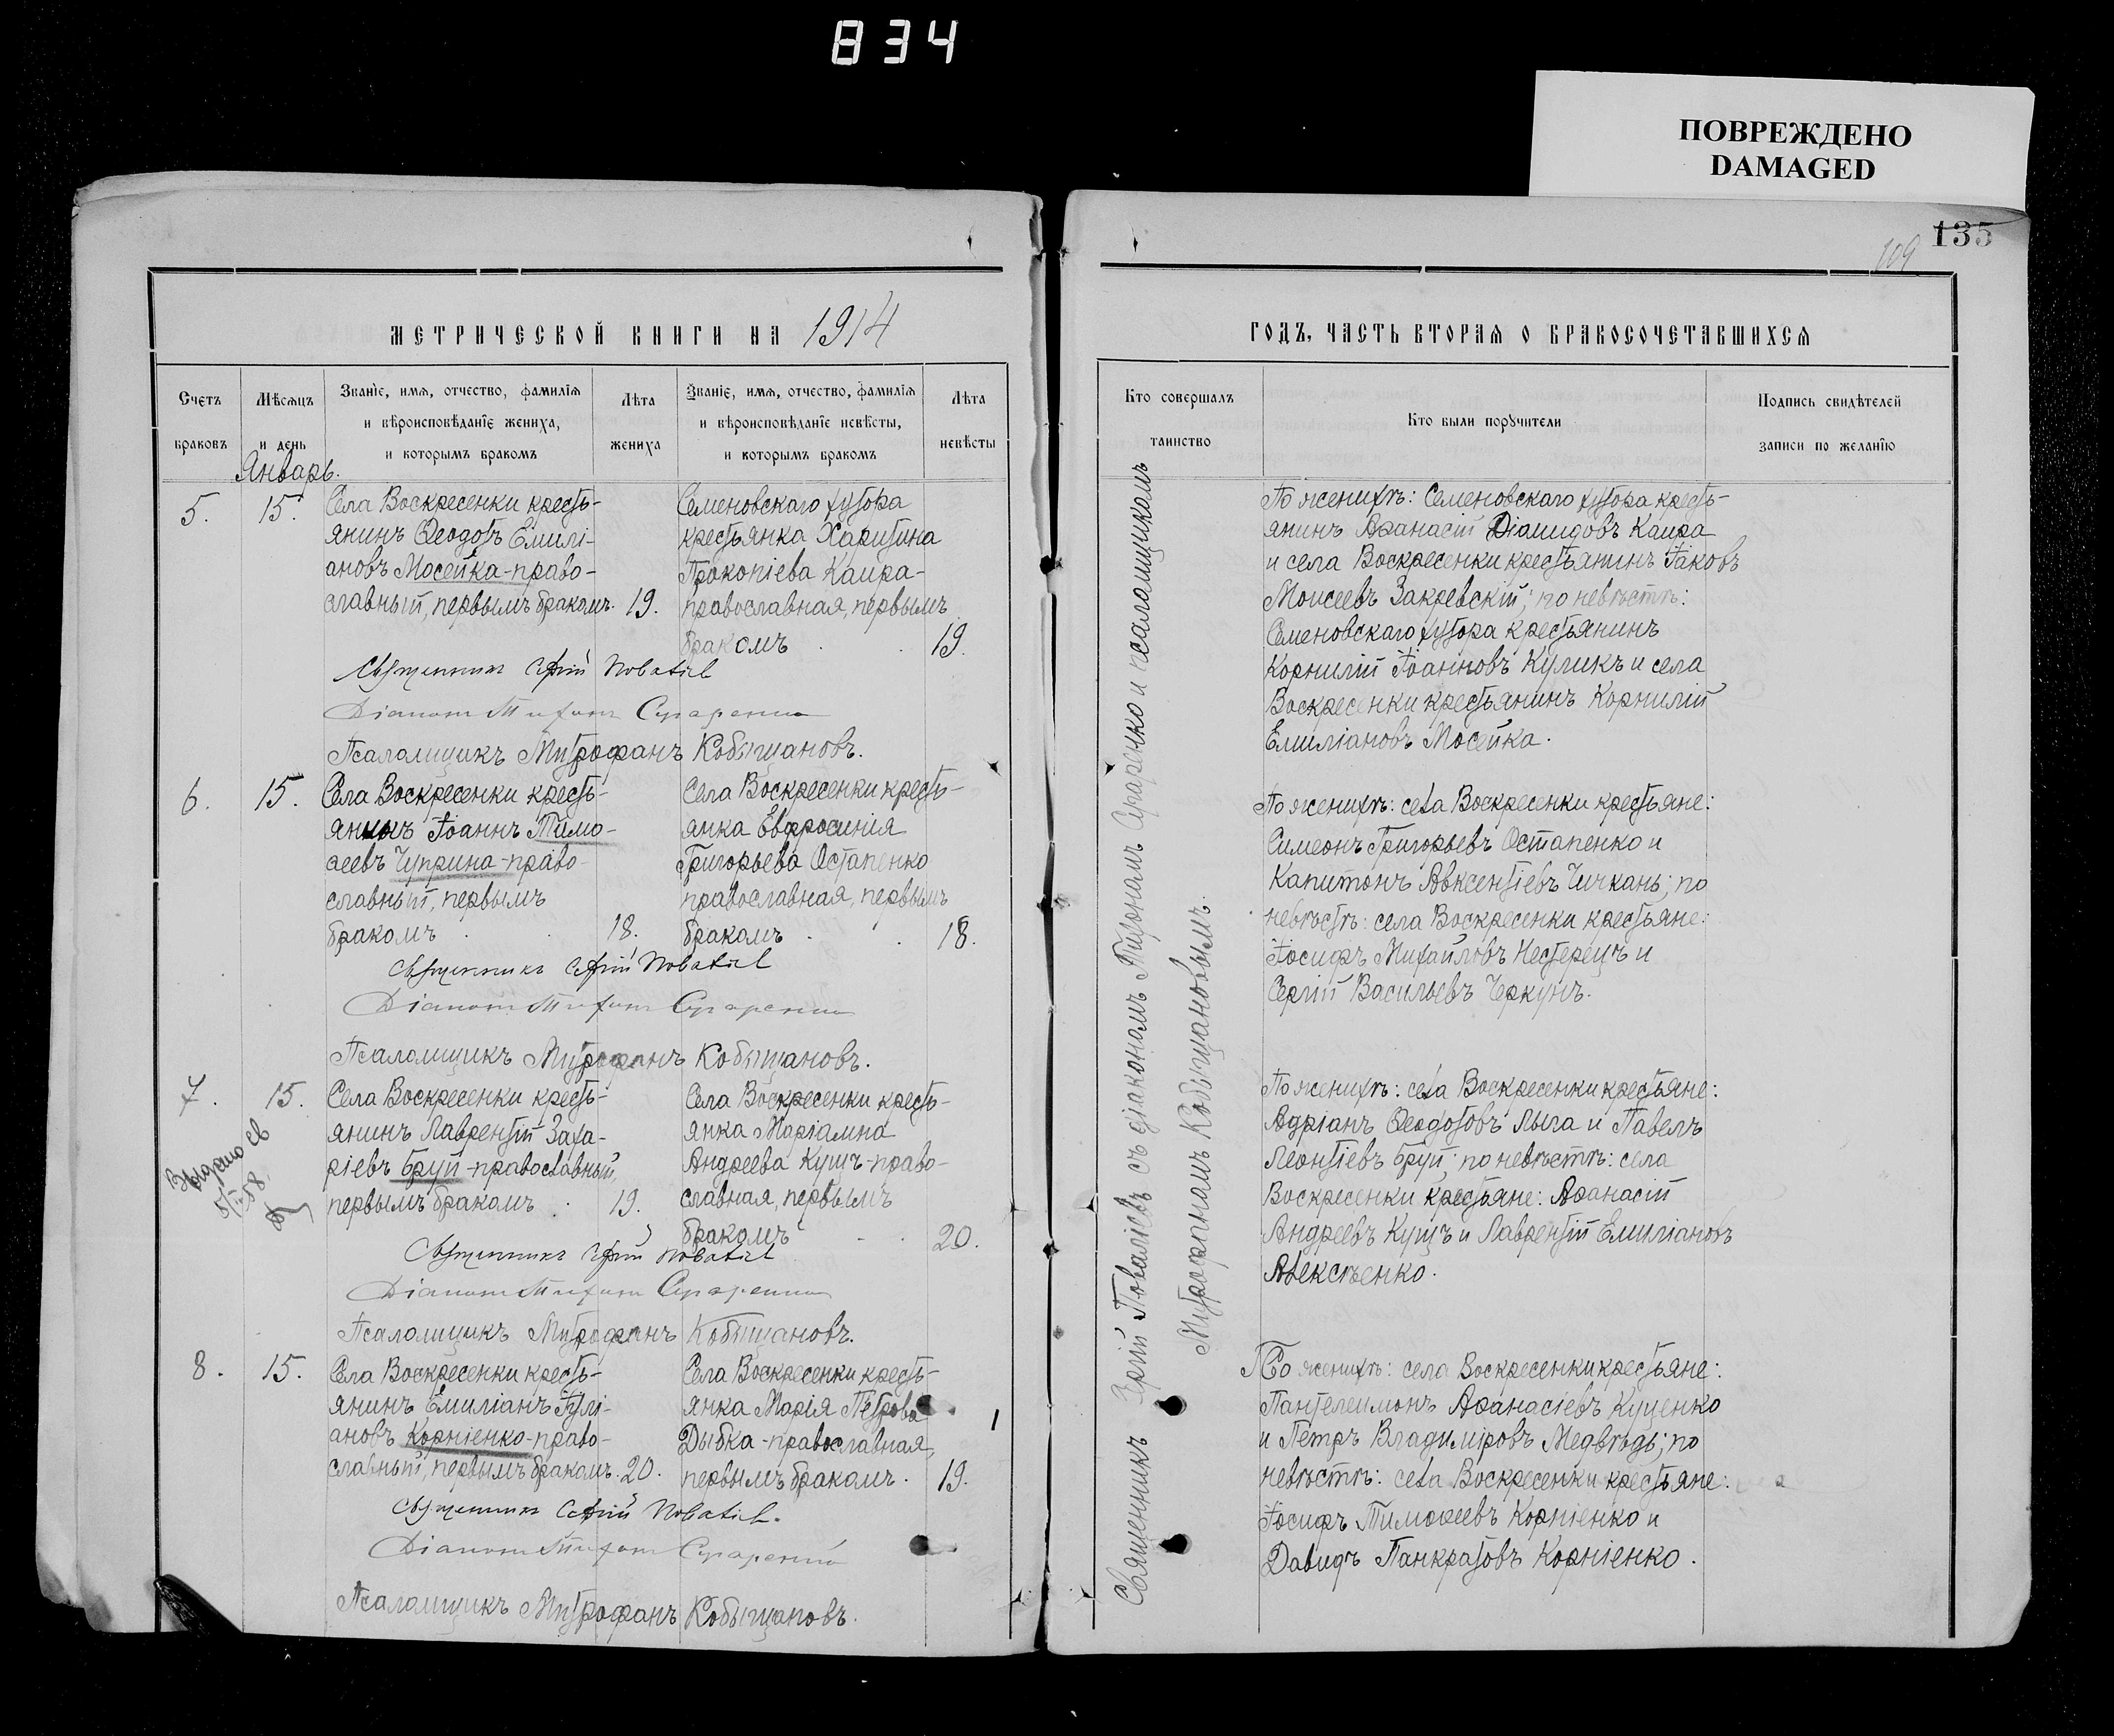 834
ПОВРЕЖДЕНО
DAMAGED
135
109
МЕТРИЧЕСКОЙ КНИГИ НА 1914
Счетъ браковъ
Мѣсяцъ и день
Званіе, имя, отчество, фамилія
и вѣроисповѣданіе жениха,
и которымъ бракомъ
Лѣта жениха
Званіе, имя, отчество, фамилія
и вѣроисповѣданіе невѣсты,
и которымъ бракомъ
Лѣта невѣсты
Январь.
5.
15.
Села Воскресенки кресть-
янинъ Ѳеодотъ Емилі-
ановъ Мосейка-право-
славный, первымъ бракомъ.
19.
Семеновскаго хутора
крестьянка Харитина
Прокопіева Каира-
православная, первымъ
бракомъ
19.
Священникъ
Діаконъ Тихонъ
Псаломщикъ Митрофанъ Кобыщановъ.
6.
15.
Села Воскресенки кресть-
янинъ Іоаннъ Тимо-
ѳеевъ Чуприна-право-
славный, первымъ
бракомъ
18.
Села Воскресенки кресть-
янка Евфросинія
Григорьева Остапенко
православная, первымъ
бракомъ
18.
Священникъ
Діаконъ Тихонъ
Псаломщикъ Митрофанъ Кобыщановъ.
7.
15.
58
Села Воскресенки кресть-
янинъ Лаврентій Заха-
ріевъ Бруй-православный,
первымъ бракомъ
19.
Села Воскресенки кресть-
янка Маріамна
Андреева Кущъ-право-
славная, первымъ
бракомъ
20.
Священникъ
Діаконъ Тихонъ
Псаломщикъ Митрофанъ Кобыщановъ.
8.
15.
Села Воскресенки кресть-
янинъ Емиліанъ Іулі-
ановъ Корніенко-право-
славный, первымъ бракомъ.
20.
Села Воскресенки кресть-
янка Марія Петрова
Дыбка-православная,
первымъ бракомъ.
19.
Священникъ
Діаконъ Тихонъ
Псаломщикъ Митрофанъ Кобыщановъ.
ГОДЪ, ЧАСТЬ ВТОРАЯ О БРАКОСОЧЕТАВШИХСЯ
Кто совершалъ
таинство
Кто были поручители
Подпись свидѣтелей
записи по желанію
Священникъ Повалієвъ съ діакономъ Тихономъ и псаломщикомъ
Митрофаномъ Кобыщановымъ.
По женихѣ: Семеновскаго хутора кресть-
янинъ Аѳанасій Діамидовъ Каира
и села Воскресенки крестьянинъ Іаковъ
Моисеевъ Закревскій; по невѣстѣ:
Семеновскаго хутора крестьянинъ
Корнилій Іоанновъ Куликъ и села
Воскресенки крестьянинъ Корнилій
Емиліановъ Мосейка.
По женихѣ: села Воскресенки крестьяне:
Симеонъ Григорьевъ Остапенко и
Капитонъ Авксентіевъ Чичкань; по
невѣстѣ: села Воскресенки крестьяне:
Іосифъ Михайловъ Нестерецъ и
Сергій Васильевъ Черкунъ.
По женихѣ: села Воскресенки крестьяне:
Адріанъ Ѳеодотовъ Лыга и Павелъ
Леонтіевъ Бруй; по невѣстѣ: села
Воскресенки крестьяне: Аѳанасій
Андреевъ Кущъ и Лаврентій Емиліановъ
Алексѣенко.
По женихѣ: села Воскресенки крестьяне:
Пантелеимонъ Аѳанасіевъ Куценко
и Петръ Владиміровъ Медвѣдь; по
невѣстѣ: села Воскресенки крестьяне:
Іосифъ Тимоѳеевъ Корніенко и
Давидъ Панкратовъ Корніенко.